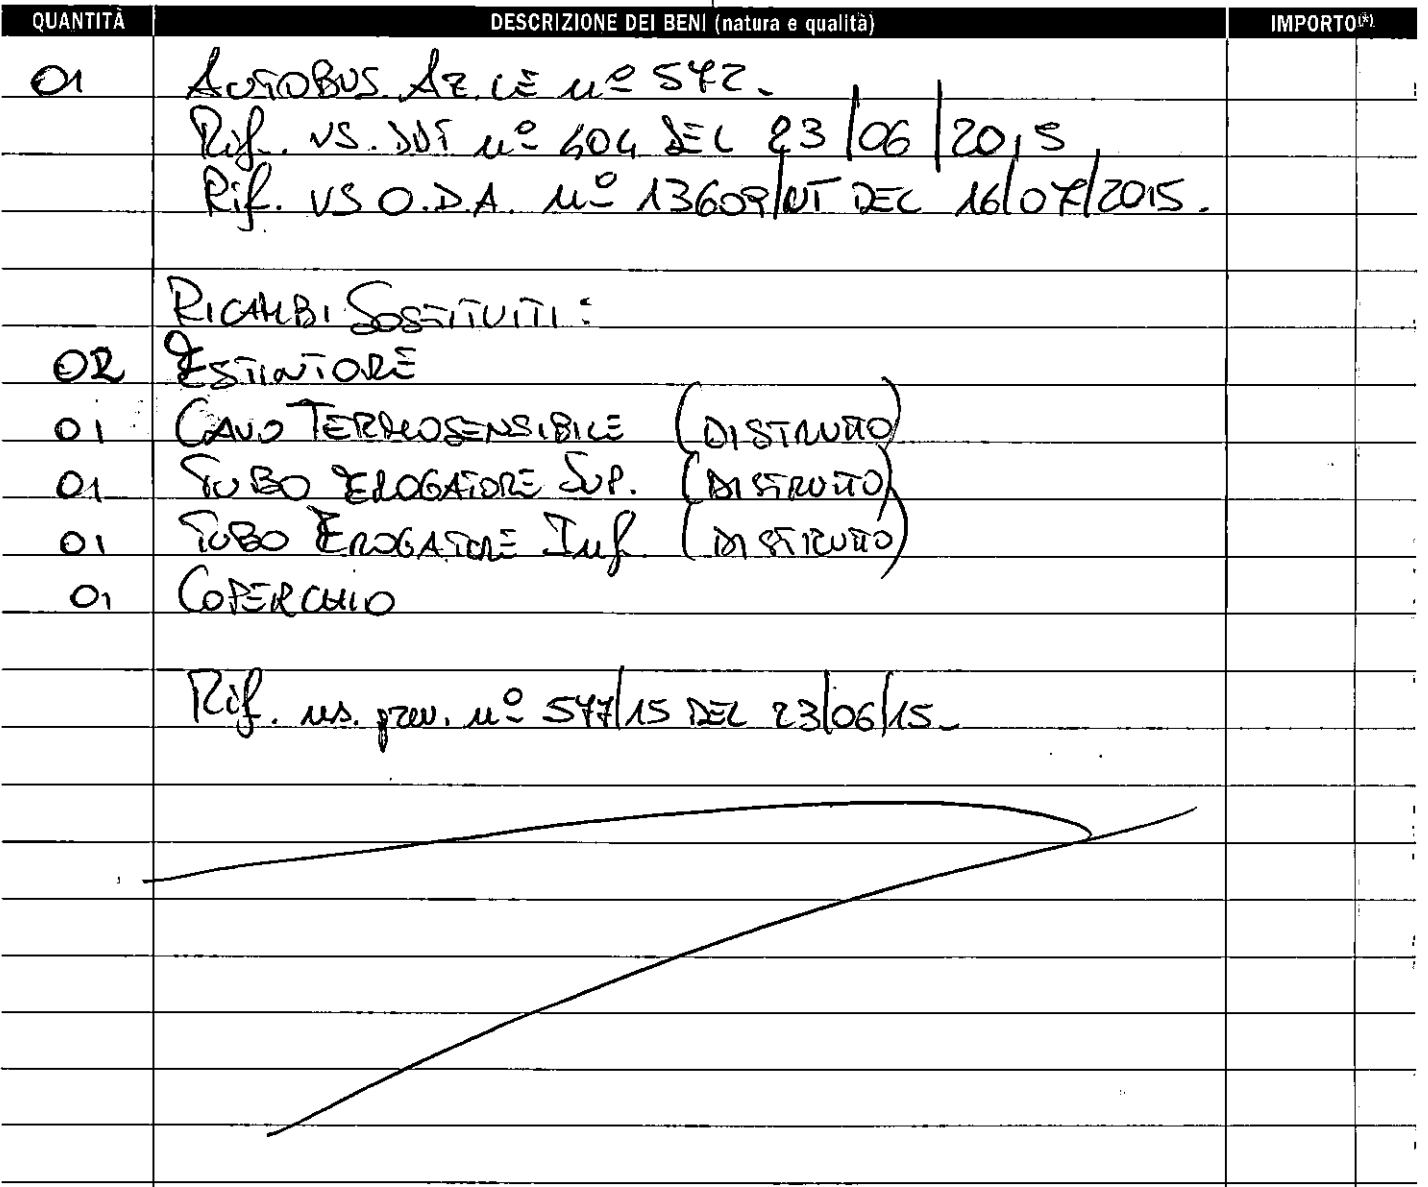 QUANTITÀ DESCRIZIONE DEI BENI (natura e qualità) IMPORTO(*)
01 AUTOBUS AZ.LE nº 572.
Rif. VS. DDT nº 404 DEL 23/06/2015
Rif. VS O.D.A. nº 13609/UT DEL 16/07/2015.
RICAMBI SOSTITUITI:
02 ESTINTORE
01 CAVO TERMOSENSIBILE (DISTRUTTO)
01 TUBO EROGATORE SUP. (DISTRUTTO)
01 TUBO EROGATORE Inf. (DISTRUTTO)
01 COPERCHIO
Rif. ns. prev. nº 577/15 DEL 23/06/15.